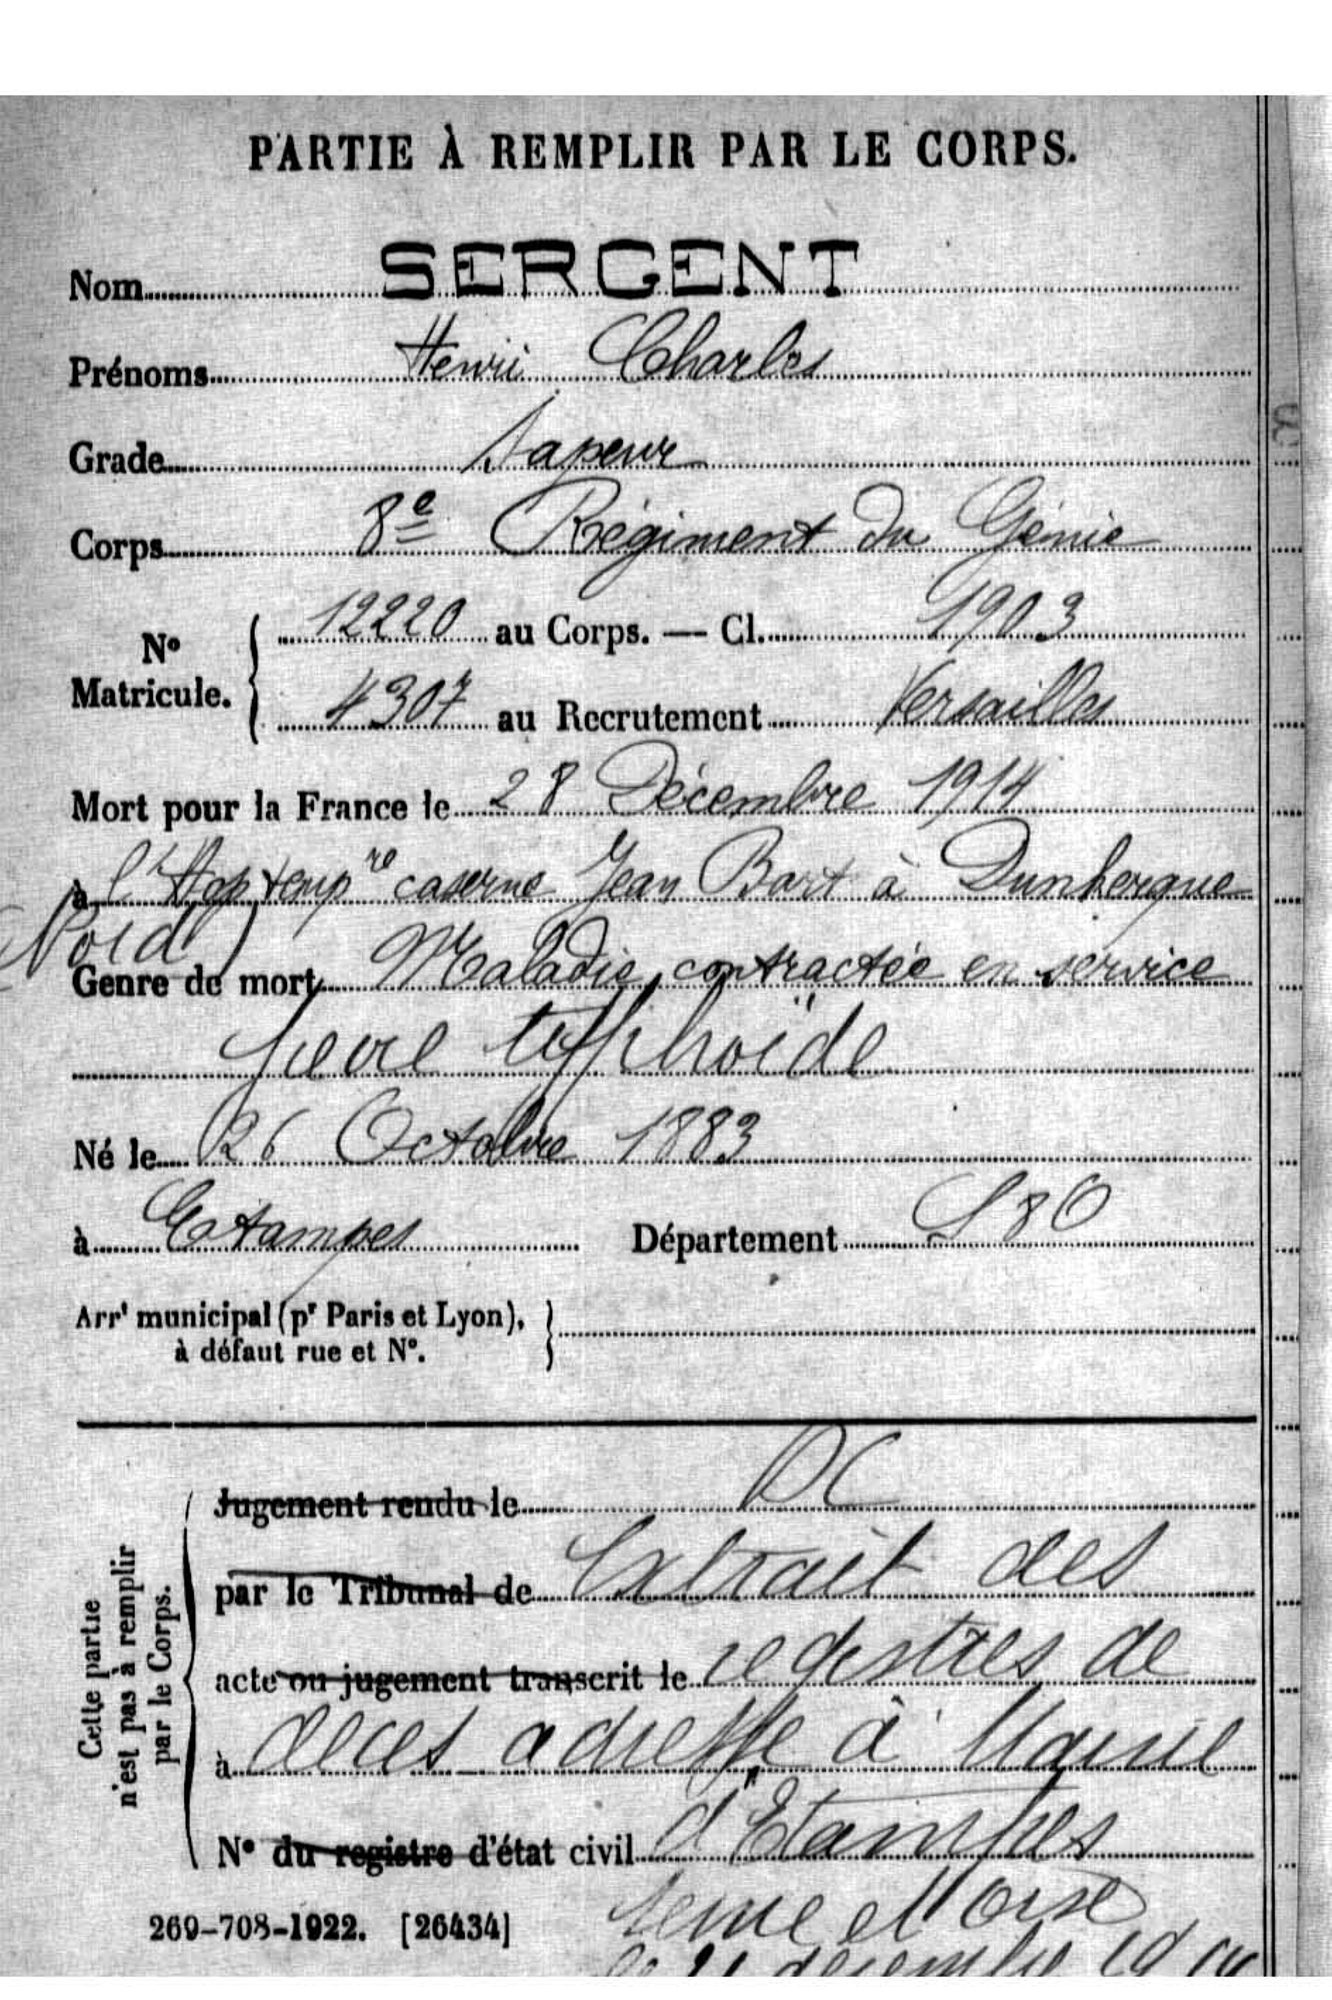 PARTIE À REMPLIR PAR LE CORPS.
Nom SERGENT
Prénoms Henri Charles
Grade Sapeur
Corps 8e Régiment du Génie
No Matricule. 12220 au Corps. — Cl. 1903
4307 au Recrutement Versailles
Mort pour la France le 28 Décembre 1914
à l'Hop tempre caserne Jean Bart à Dunkerque
Nord)
Genre de mort Maladie contractée en service
fievre typhoïde
Né le 26 Octobre 1883
à Etampes Département S & O
Arrt municipal (pr Paris et Lyon),
à défaut rue et No.
Cette partie
n'est pas à remplir
par le Corps.
Jugement rendu le DC
par le Tribunal de Extrait des
acte ou jugement transcrit le registres de
à décès adressé à Mairie
No du registre d'état civil d'Etampes
Seine et Oise
269-708-1922. [26434]
le décembre